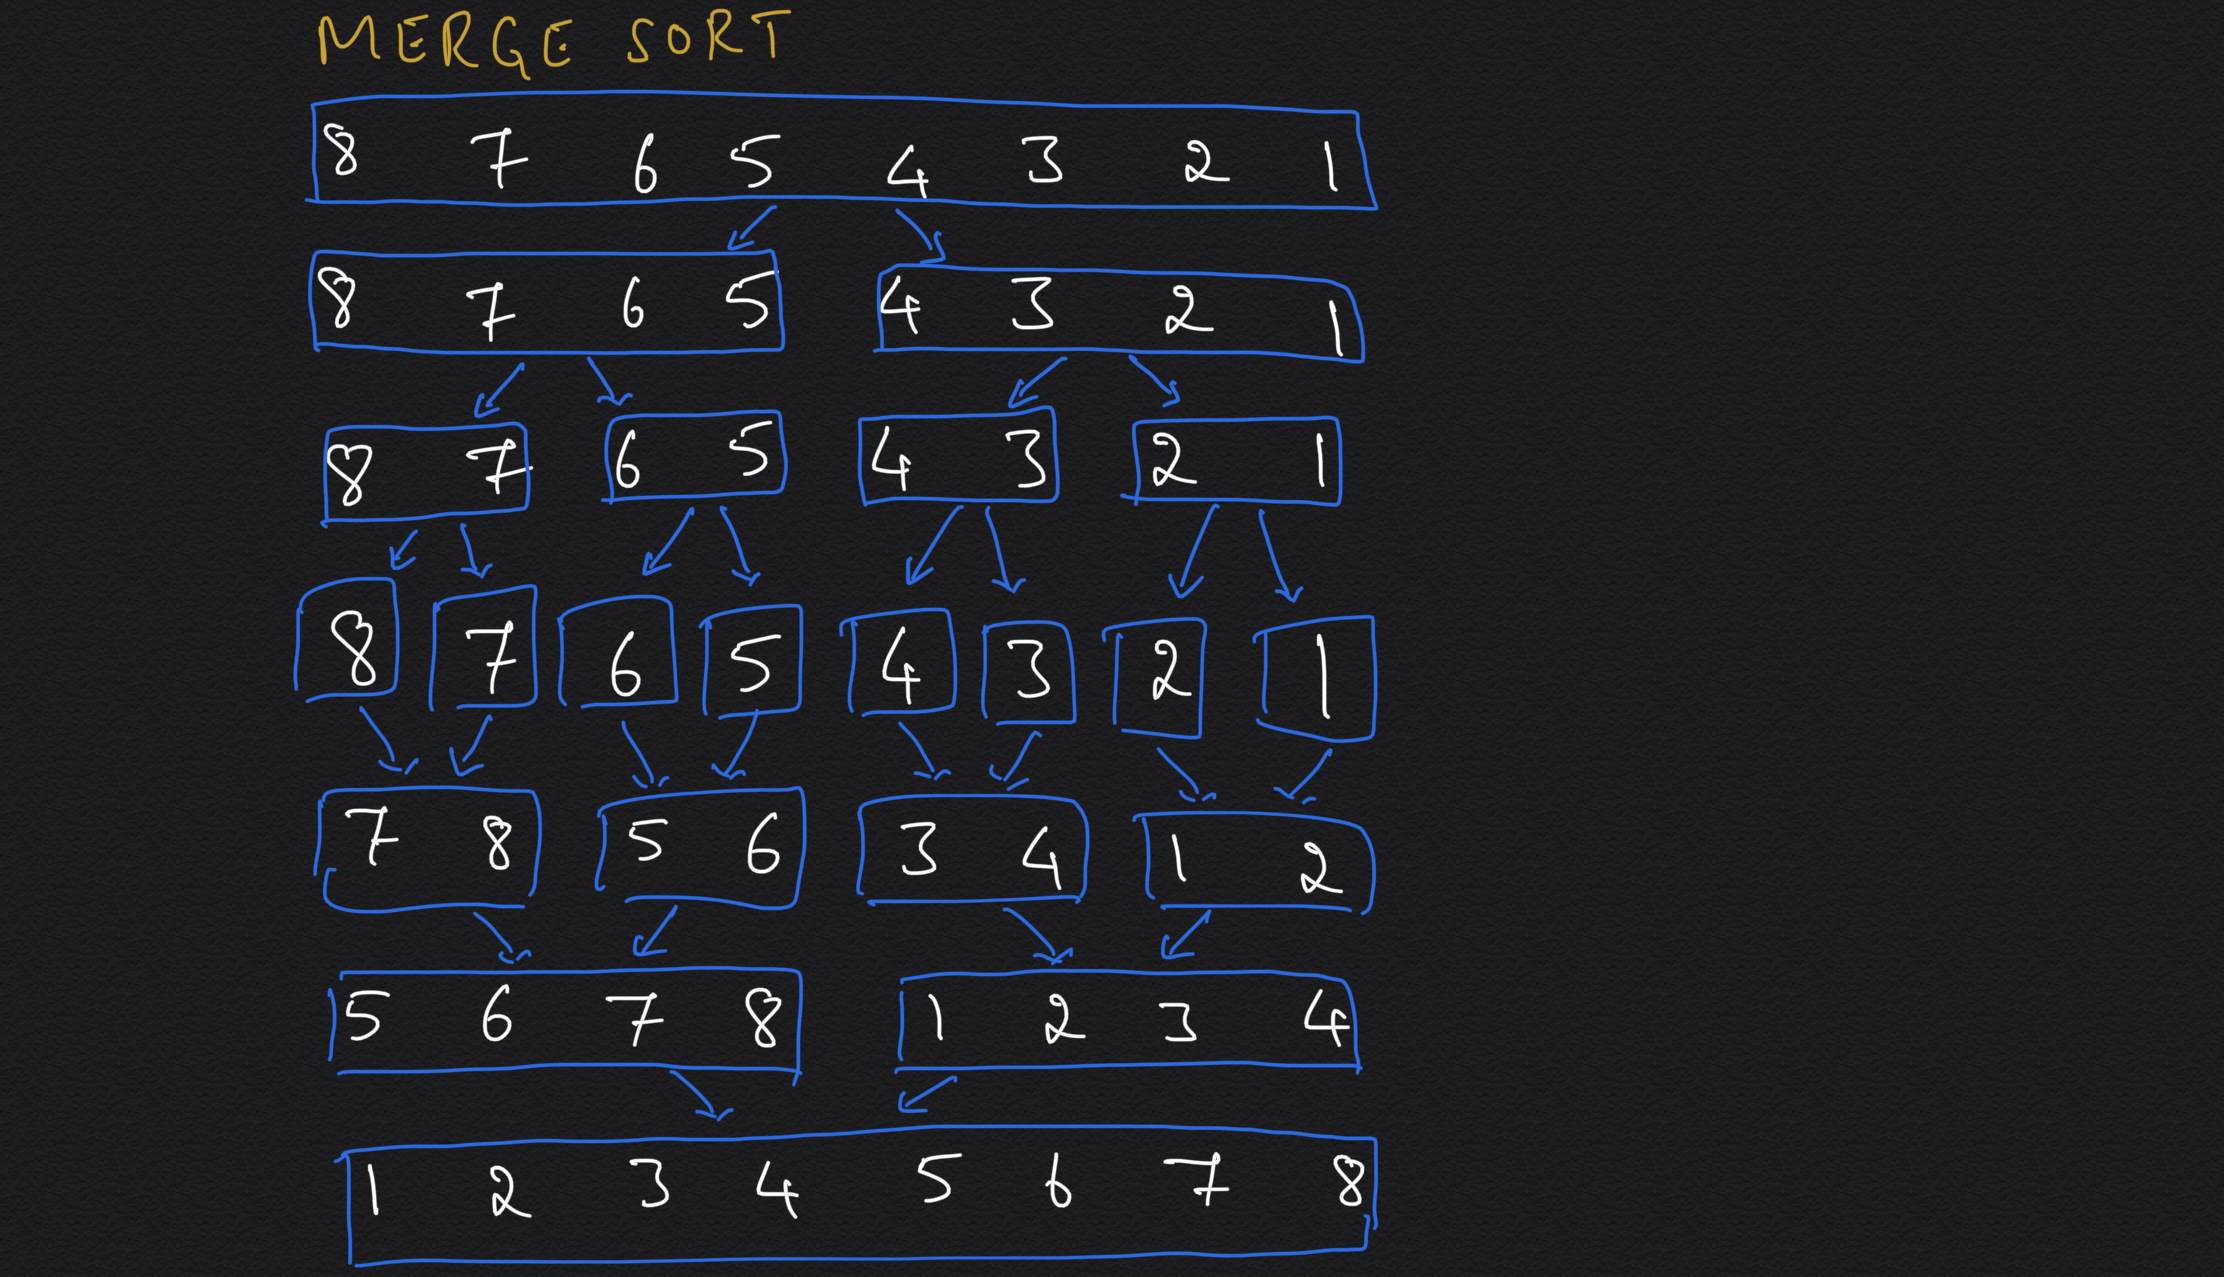 MERGE SORT
8 7 6 5 4 3 2 1
8 7 6 5 4 3 2 1
8 7 6 5 4 3 2 1
8 7 6 5 4 3 2 1
7 8 5 6 3 4 1 2
5 6 7 8 1 2 3 4
1 2 3 4 5 6 7 8